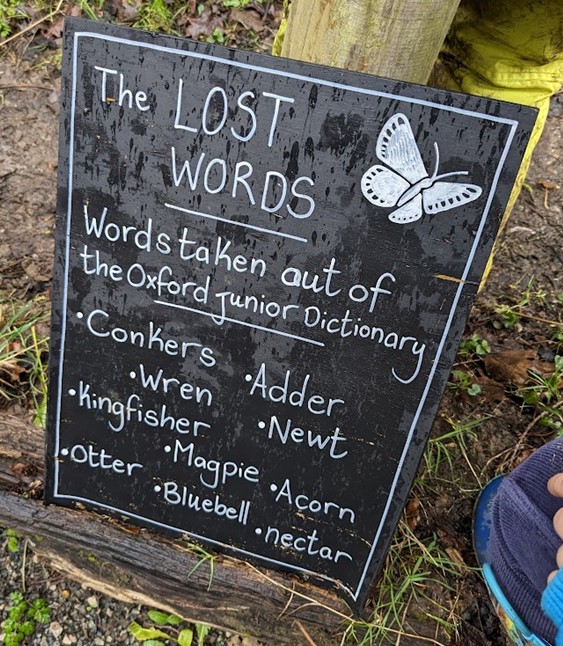 The LOST
WORDS
Words taken out of
the Oxford Junior Dictionary
• Conkers
• Wren • Adder
• Kingfisher • Newt
• Otter • Magpie • Acorn
• Bluebell • nectar